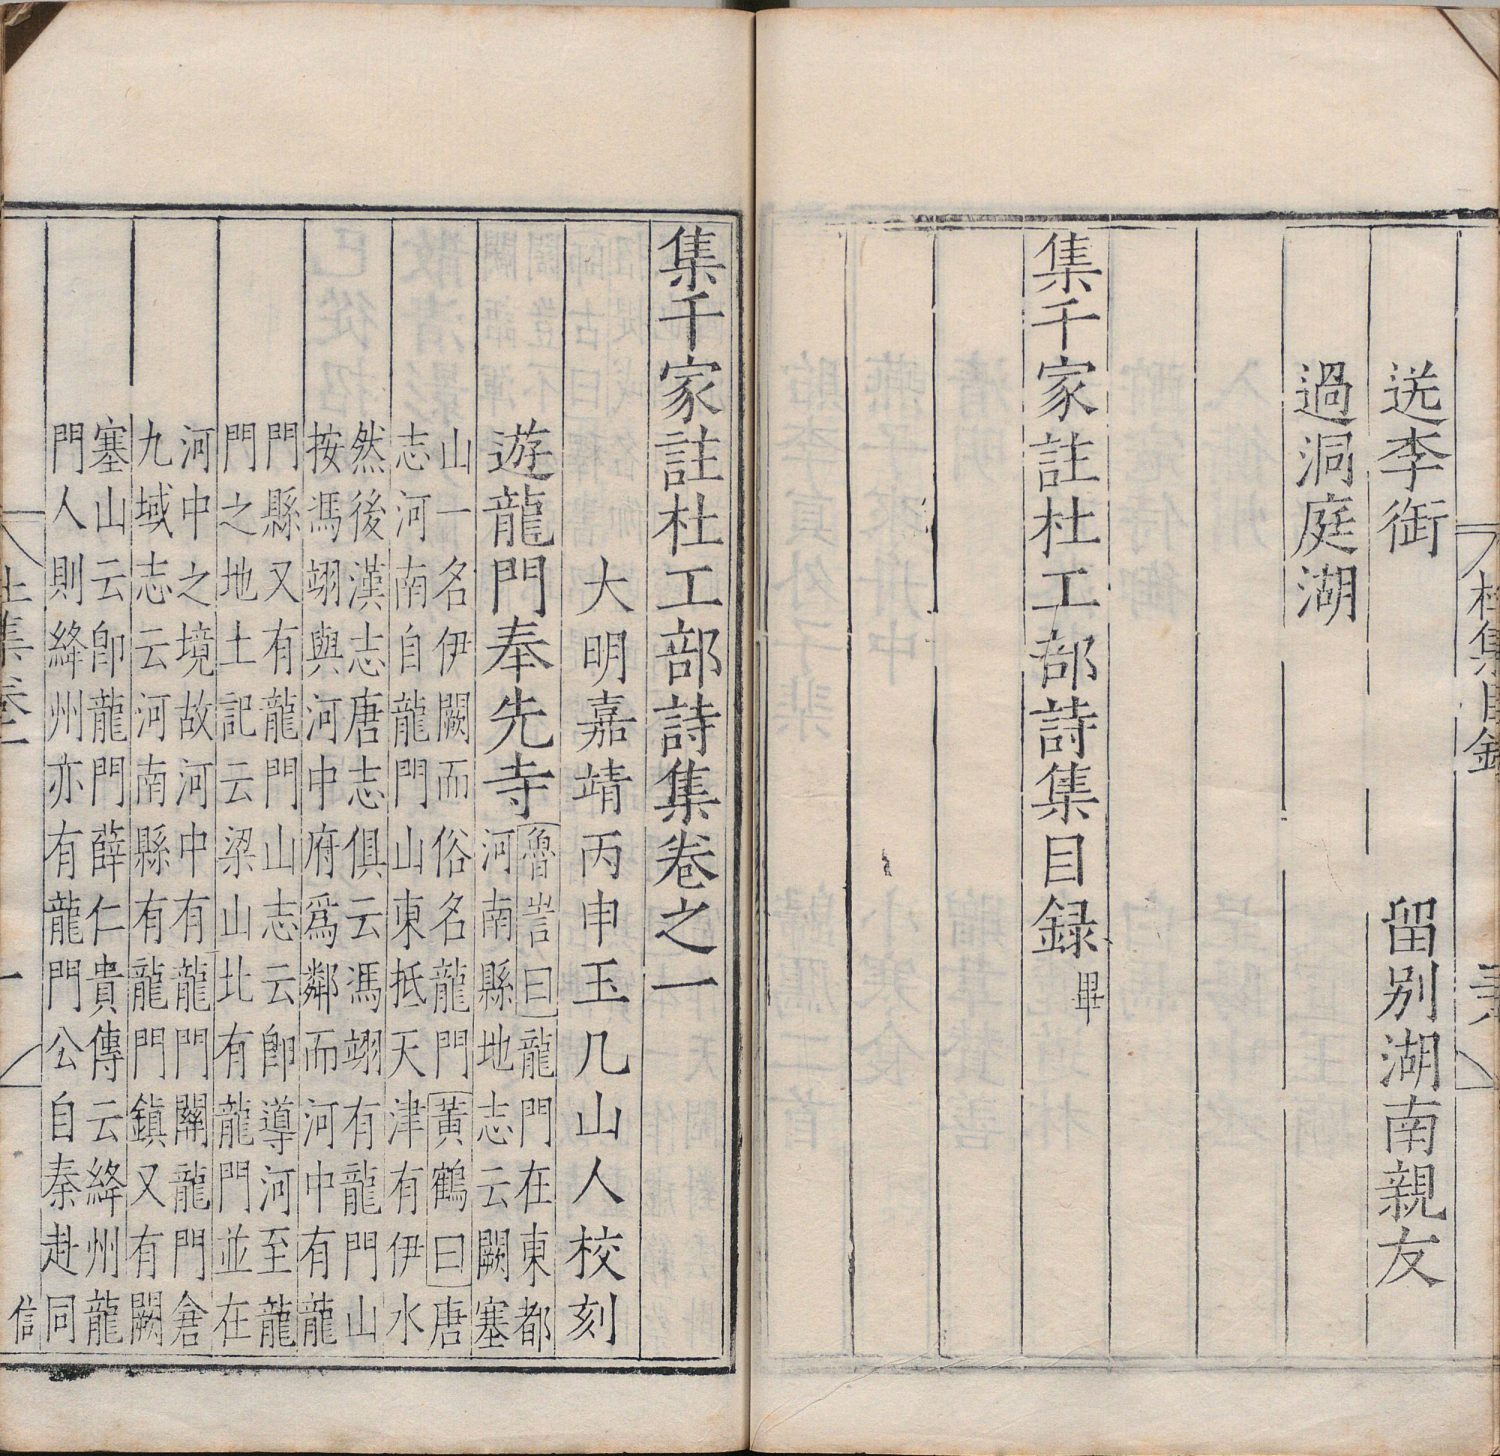 杜集目錄
送李銜 留別湖南親友
過洞庭湖
集千家註杜工部詩集目録畢
集千家註杜工部詩集卷之一
大明嘉靖丙申玉几山人校刻
遊龍門奉先寺 魯訔曰龍門在東都
河南縣地志云闕塞
山一名伊闕而俗名龍門黃鶴曰唐
志河南自龍門山東抵天津有伊水
然後漢志唐志俱云馮翊有龍門山
按馮翊與河中府爲鄰而河中有龍
門縣又有龍門山志云卽導河至龍
門之地土記云梁山北有龍門並在
河中之境故河中有龍門關龍門倉
九域志云河南縣有龍門鎮又有闕
塞山云卽龍門薛仁貴傳云絳州龍
門人則絳州亦有龍門公自秦赴同
杜集卷一 一 信